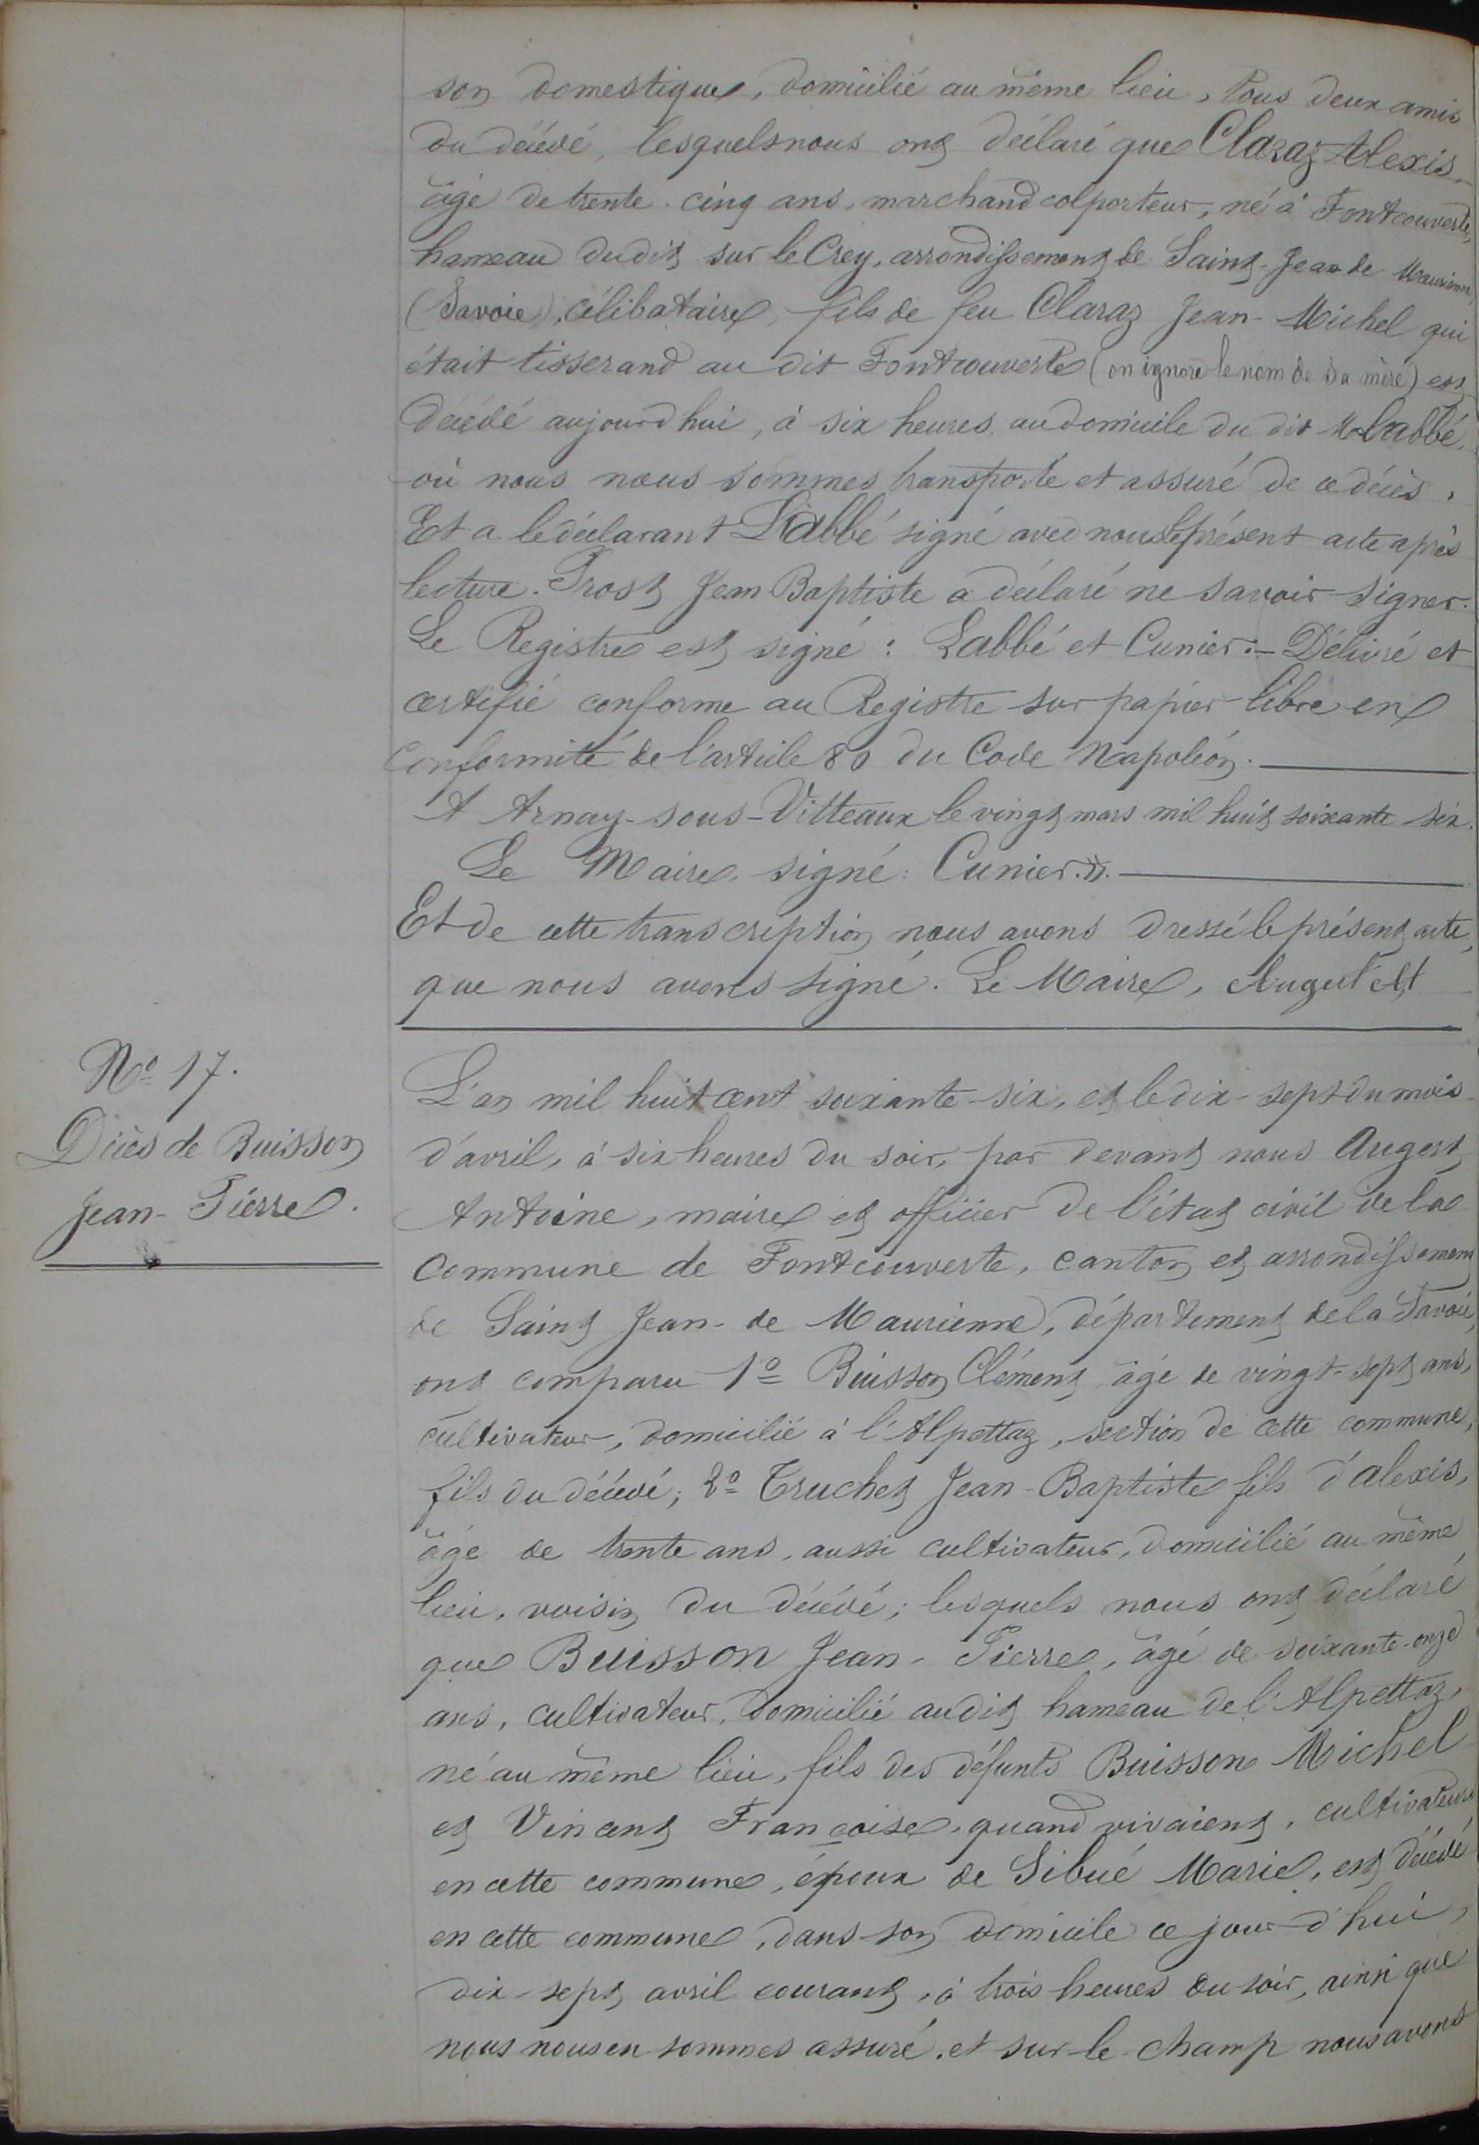 son domestique, domicilié au même lieu, tous deux amis
du décédé, lesquels nous ont déclaré que Claraz Alexis,
âgé de trente-cinq ans, marchand colporteur, né à Fontcouverte,
hameau dudit sur le Crey, arrondissement de Saint-Jean de Maurienne,
(Savoie), célibataire, fils de feu Claraz Jean-Michel qui
était tisserand au dit Fontcouverte (on ignore le nom de sa mère) est
décédé aujourd'hui, à six heures, au domicile du dit M Labbé,
où nous nous sommes transporté et assuré de ce décès.
Et a le déclarant Labbé signé avec nous le présent acte après
lecture. Prost Jean Baptiste a déclaré ne savoir signer.
Le Registre est signé : Labbé et Cunier. – Délivré et
certifié conforme au Registre sur papier libre en
conformité de l'article 80 du Code Napoléon.
A Arnay-sous-Vitteaux le vingt mars mil huit soixante six.
Le Maire, signé : Cunier.».
Et de cette transcription nous avons dressé le présent acte,
que nous avons signé. Le Maire, Augert Ant
Nº 17.
Décès de Buisson
Jean-Pierre.
L'an mil huit cent soixante-six, et le dix-sept du mois
d'avril, à six heures du soir, par devant nous Augert
Antoine, maire et officier de l'état civil de la
commune de Fontcouverte, canton et arrondissement
de Saint Jean-de Maurienne, département de la Savoie,
ont comparu 1º Buisson Clément âgé de vingt-sept ans,
cultivateur, domicilié à l'Alpettaz, section de cette commune,
fils du décédé; 2º Truchet Jean-Baptiste fils d'alexis,
âgé de trente ans, aussi cultivateur, domicilié au même
lieu, voisin du décédé; lesquels nous ont déclaré
que Buisson Jean-Pierre, âgé de soixante-onze
ans, cultivateur, domicilié audit hameau de l'Alpettaz,
né au même lieu, fils des défunts Buisson Michel
et Vincent Françoise, quand vivaient, cultivateurs
en cette commune, époux de Sibué Marie, est décédé
en cette commune, dans son domicile ce jour-d'hui,
dix-sept avril courant, à trois heures du soir, ainsi que
nous nous en sommes assuré. et sur-le-champ nous avons